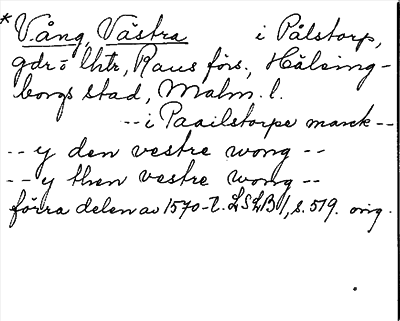 *Vång, Västra i Pålstorp,
gdr o lhtr, Raus förs., Hälsing-
borgs stad, Malm. l.
-- i Paailstorpe marck --
-- y den vestre wong --
-- y then vestre wong --
förra delen av 1570-t. LSLB 1, s. 519. orig.